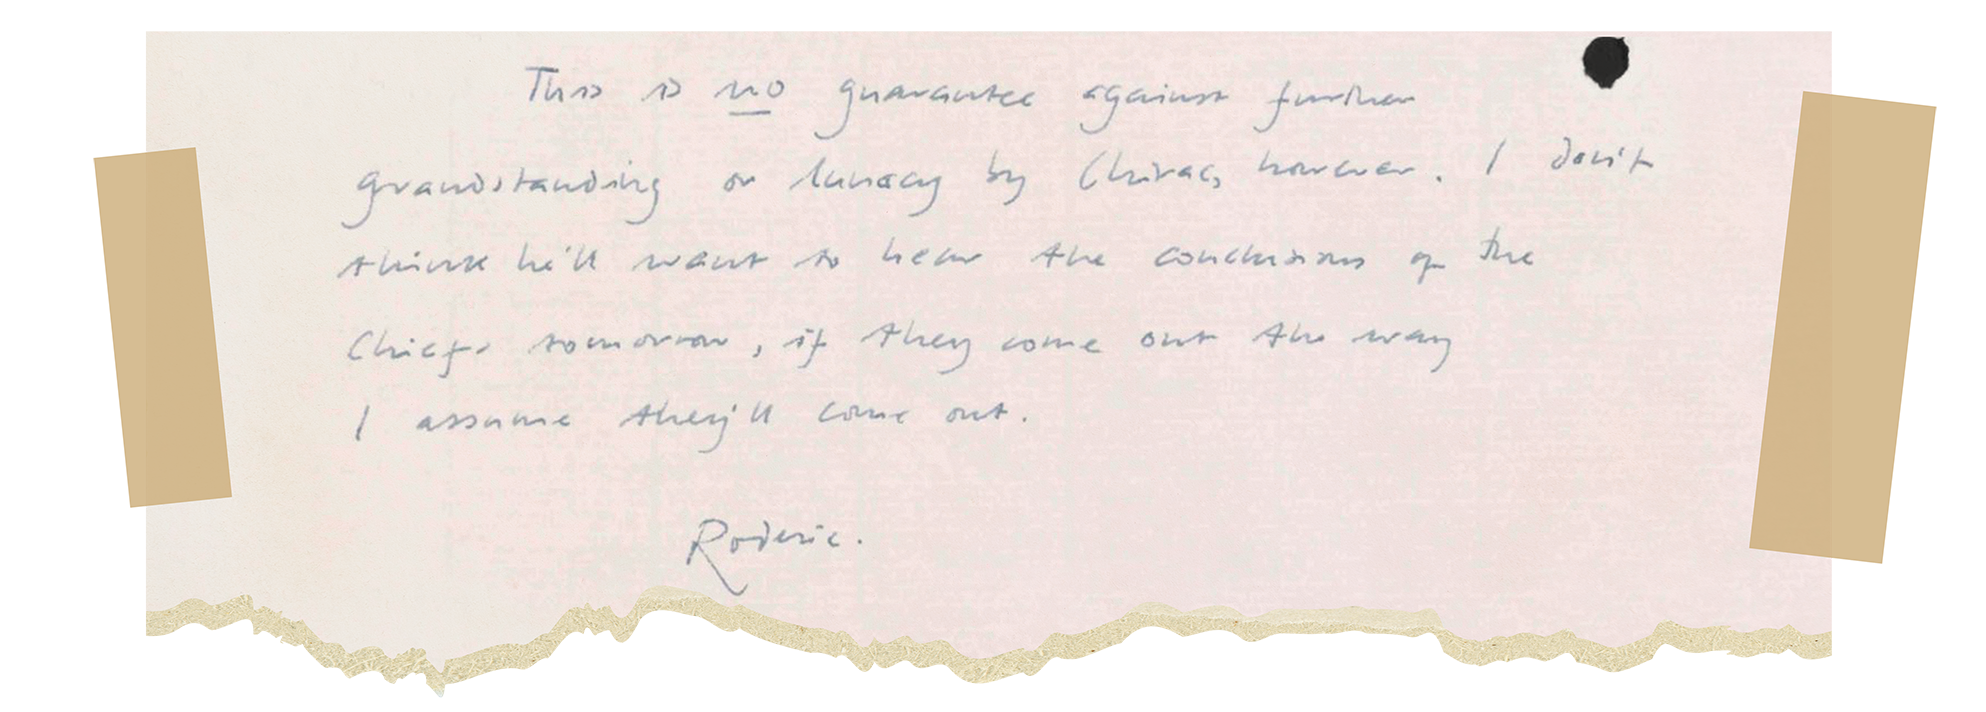 This is no guarantee against further
grandstanding or lunacy by Chirac, however. I don't
think he'll want to hear the conclusions of the
Chiefs tomorrow, if they come out the way
I assume they'll come out.
Roderic.